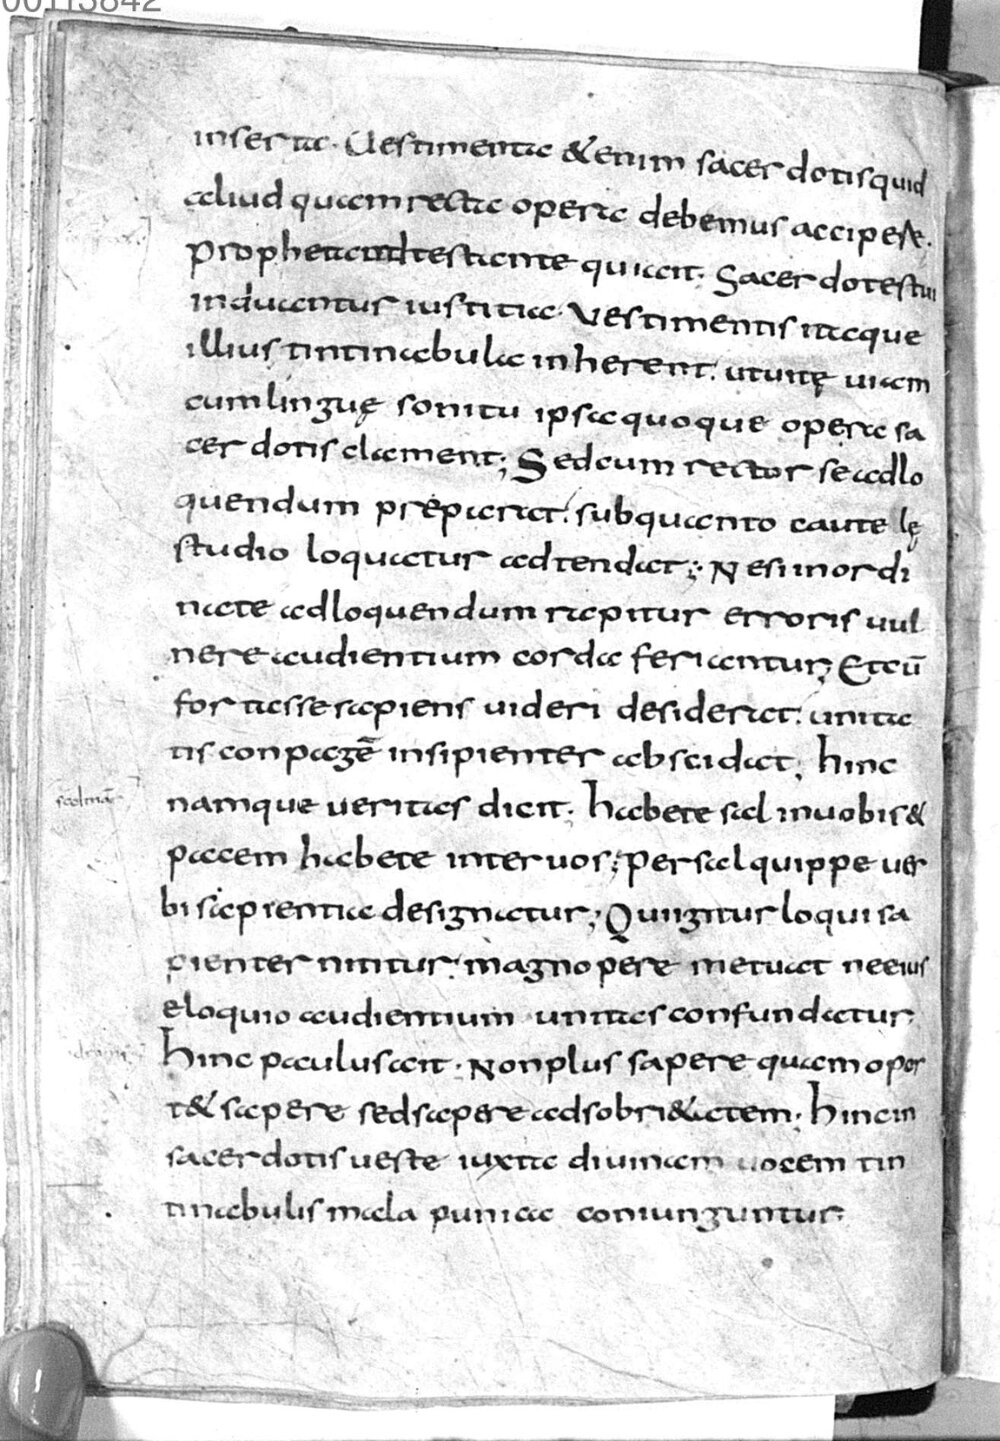 00113842
inserta. Uestimenta & enim sacerdotis quid
aliud quam recta opera debemus accipere.
Propheta adtestante qui ait. Sacerdotes tui
induantur iustitia. Vestimentis itaque
illius tintinabula inherent. ut uitę uiam
cum linguę sonitu ipsa quoque opera sa
cerdotis clament; Sed cum rector se ad lo
quendum preparat. sub quanto cautelę
studio loquatur adtendat; Ne si inordi
nate ad loquendum rapitur erroris uul
nere audientium corda feriantur; Et cū
fortasse sapiens uideri desiderat. unita
tis conpagē insipienter abscidat; hinc
namque ueritas dicit. habete sal in uobis &
pacem habete inter uos; Per sal quippe uer
bi sapientia designatur; Qui igitur loqui sa
pienter nititur. magnopere metuat ne eius
eloquio audientium unitas confundatur;
hinc paulus ait. Non plus sapere quam opor
t& sapere sed sapere ad sobri&atem. hinc in
sacerdotis ueste iuxta diuinam uocem tin
tinabulis mala punica coniunguntur;